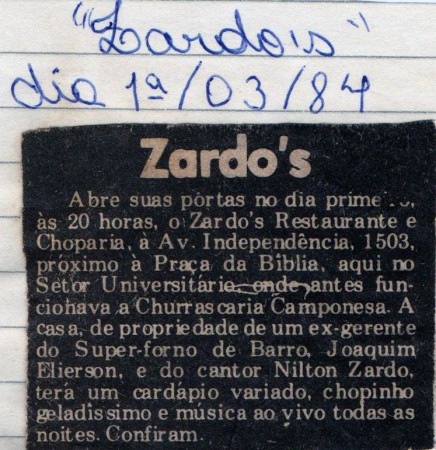 "Zardo's"
dia 1ª/03/84
Zardo's
Abre suas portas no dia primeiro,
às 20 horas, o Zardo's Restaurante e
Choparia, à Av. Independência, 1503,
próximo à Praça da Bíblia, aqui no
Setor Universitário, onde antes fun-
cionava a Churrascaria Camponesa. A
casa, de propriedade de um ex-gerente
do Super-forno de Barro, Joaquim
Elierson, e do cantor Nilton Zardo,
terá um cardápio variado, chopinho
geladíssimo e música ao vivo todas as
noites. Confiram.